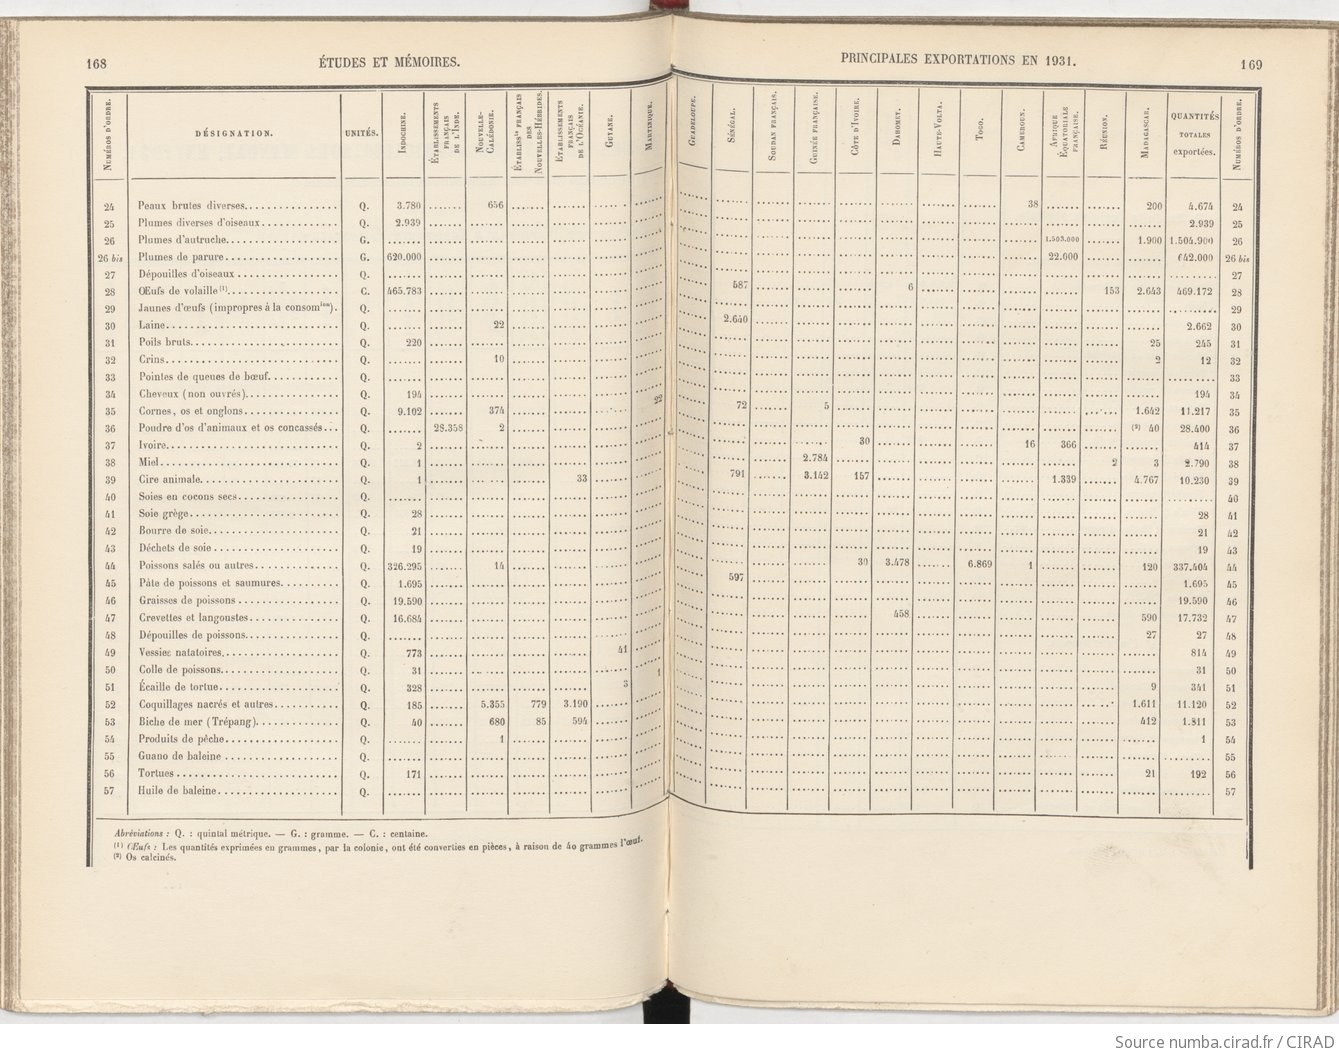 168 ÉTUDES ET MÉMOIRES.
PRINCIPALES EXPORTATIONS EN 1931. 169
NUMÉROS D'ORDRE. DÉSIGNATION. UNITÉS. INDOCHINE. ÉTABLISSEMENTS FRANÇAIS DE L'INDE. NOUVELLE-CALÉDONIE. ÉTABLISSts FRANÇAIS DES NOUVELLES-HÉBRIDES. ÉTABLISSEMENTS FRANÇAIS DE L'OCÉANIE. GUYANE. MARTINIQUE. GUADELOUPE. SÉNÉGAL. SOUDAN FRANÇAIS. GUINÉE FRANÇAISE. CÔTE D'IVOIRE. DAHOMEY. HAUTE-VOLTA. TOGO. CAMEROUN. AFRIQUE ÉQUATORIALE FRANÇAISE. RÉUNION. MADAGASCAR. QUANTITÉS TOTALES exportées. NUMÉROS D'ORDRE.
24 Peaux brutes diverses. Q. 3.780 656 38 200 4.674 24
25 Plumes diverses d'oiseaux Q. 2.939 2.939 25
26 Plumes d'autruche. G. 1.503.000 1.900 1.504.900 26
26 bis Plumes de parure G. 620.000 22.000 642.000 26 bis
27 Dépouilles d'oiseaux Q. 27
28 Œufs de volaille (1). C. 465.783 587 6 153 2.643 469.172 28
29 Jaunes d'œufs (impropres à la consomion). Q. 29
30 Laine. Q. 22 2.640 2.662 30
31 Poils bruts. Q. 220 25 245 31
32 Crins. Q. 10 2 12 32
33 Pointes de queues de bœuf. Q. 33
34 Cheveux (non ouvrés). Q. 194 194 34
35 Cornes, os et onglons Q. 9.102 374 22 72 5 1.642 11.217 35
36 Poudre d'os d'animaux et os concassés. Q. 28.358 2 (2) 40 28.400 36
37 Ivoire. Q. 2 30 16 366 414 37
38 Miel Q. 1 2.784 2 3 2.790 38
39 Cire animale. Q. 1 33 791 3.142 157 1.339 4.767 10.230 39
40 Soies en cocons secs Q. 40
41 Soie grège Q. 28 28 41
42 Bourre de soie. Q. 21 21 42
43 Déchets de soie Q. 19 19 43
44 Poissons salés ou autres Q. 326.295 14 597 30 3.478 6.869 1 120 337.404 44
45 Pâte de poissons et saumures. Q. 1.695 1.695 45
46 Graisses de poissons Q. 19.590 19.590 46
47 Crevettes et langoustes Q. 16.684 458 590 17.732 47
48 Dépouilles de poissons. Q. 27 27 48
49 Vessies natatoires. Q. 773 41 814 49
50 Colle de poissons. Q. 31 31 50
51 Écaille de tortue Q. 328 3 1 9 341 51
52 Coquillages nacrés et autres Q. 185 5.355 779 3.190 1.611 11.120 52
53 Biche de mer (Trépang). Q. 40 680 85 594 412 1.811 53
54 Produits de pêche Q. 1 1 54
55 Guano de baleine Q. 55
56 Tortues Q. 171 21 192 56
57 Huile de baleine Q. 57
Abréviations : Q. : quintal métrique. — G. : gramme. — C. : centaine.
(1) Œufs : Les quantités exprimées en grammes, par la colonie, ont été converties en pièces, à raison de 40 grammes l'œuf.
(2) Os calcinés.
Source numba.cirad.fr / CIRAD